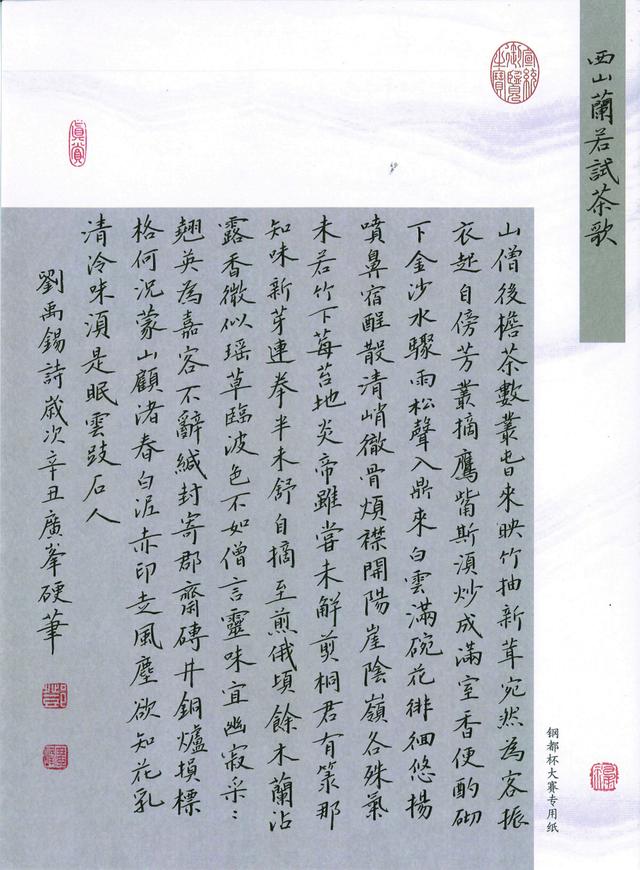 西山蘭若試茶歌
宣統御覽之寶
真賞
山僧後檐茶數叢旾來映竹抽新茸宛然為客振
衣起自傍芳叢摘鷹觜斯須炒成滿室香便酌砌
下金沙水驟雨松聲入鼎來白雲滿碗花徘徊悠揚
噴鼻宿酲散清峭徹骨煩襟開陽崖陰嶺各殊氣
未若竹下莓苔地炎帝雖嘗未解剪桐君有箓那
知味新芽連拳半未舒自摘至煎俄頃餘木蘭沾
露香微似瑶草臨波色不如僧言靈味宜幽寂采〻
翹英為嘉客不辭緘封寄郡齋磚井銅爐損標
格何況蒙山顧渚春白泥赤印走風塵欲知花乳
清泠味須是眠雲跂石人
劉禹錫詩歲次辛丑廣峯硬筆
钢都杯大赛专用纸